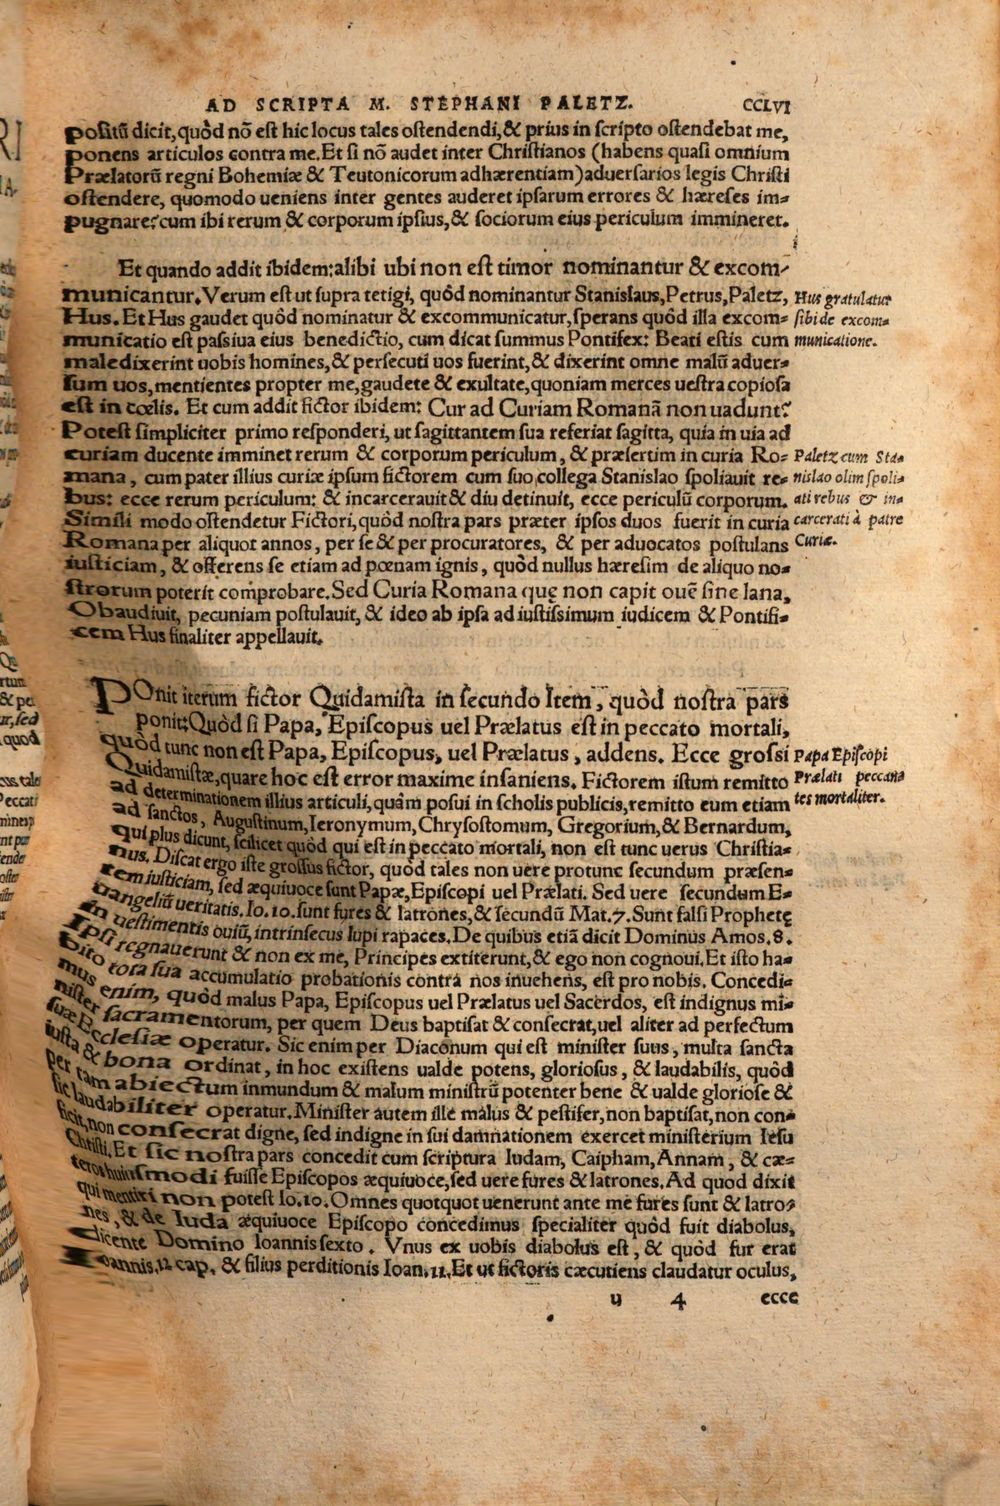 AD SCRIPTA M. STEPHANI PALETZ. CCLVI
positū dicit, quòd nō est hic locus tales ostendendi, & prius in scripto ostendebat me,
ponens articulos contra me. Et si nō audet inter Christianos (habens quasi omnium
Prælatorū regni Bohemiæ & Teutonicorum adhærentiam) aduersarios legis Christi
ostendere, quomodo ueniens inter gentes auderet ipsarum errores & hæreses im-
pugnare? cum ibi rerum & corporum ipsius, & sociorum eius periculum immineret.
Et quando addit ibidem: alibi ubi non est timor nominantur & excom-
municantur. Verum est ut supra tetigi, quòd nominantur Stanislaus, Petrus, Paletz,
Hus. Et Hus gaudet quòd nominatur & excommunicatur, sperans quòd illa excom-
municatio est passiua eius benedictio, cum dicat summus Pontifex: Beati estis cum
maledixerint uobis homines, & persecuti uos fuerint, & dixerint omne malū aduer-
sum uos, mentientes propter me, gaudete & exultate, quoniam merces uestra copiosa
est in cœlis. Et cum addit fictor ibidem: Cur ad Curiam Romanā non uadunt?
Potest simpliciter primo responderi, ut sagittantem sua referiat sagitta, quia in uia ad
curiam ducente imminet rerum & corporum periculum, & præsertim in curia Ro-
mana, cum pater illius curiæ ipsum fictorem cum suo collega Stanislao spoliauit re-
bus: ecce rerum periculum: & incarcerauit & diu detinuit, ecce periculū corporum.
Simili modo ostendetur Fictori, quòd nostra pars præter ipsos duos fuerit in curia
Romana per aliquot annos, per se & per procuratores, & per aduocatos postulans
iusticiam, & offerens se etiam ad pœnam ignis, quòd nullus hæresim de aliquo no-
strorum poterit comprobare. Sed Curia Romana quę non capit ouē sine lana,
Obaudiuit, pecuniam postulauit, & ideo ab ipsa ad iustissimum iudicem & Pontifi-
cem Hus finaliter appellauit.
Hus gratulatur
sibi de excom-
municatione.
Paletz cum Sta-
nislao olim spoli-
ati rebus & in-
carcerati à patre
Curiæ.
POnit iterum fictor Quidamista in secundo Item, quòd nostra pars
ponit: Quòd si Papa, Episcopus uel Prælatus est in peccato mortali,
quòd tunc non est Papa, Episcopus, uel Prælatus, addens. Ecce grossi
Quidamistæ, quare hoc est error maxime insaniens. Fictorem istum remitto
ad determinationem illius articuli, quàm posui in scholis publicis, remitto eum etiam
ad sanctos, Augustinum, Ieronymum, Chrysostomum, Gregorium, & Bernardum,
qui plus dicunt, scilicet quòd qui est in peccato mortali, non est tunc uerus Christia-
nus. Discat ergo iste grossus fictor, quòd tales non uere protunc secundum præsen-
tem iusticiam, sed æquiuoce sunt Papæ, Episcopi uel Prælati. Sed uere secundum E-
uangeliū ueritatis. Io. 10. sunt fures & latrones, & secundū Mat. 7. Sunt falsi Prophetę
in uestimentis ouiū, intrinsecus lupi rapaces. De quibus etiā dicit Dominus Amos. 8.
Ipsi regnauerunt & non ex me, Principes extiterunt, & ego non cognoui. Et isto ha-
bito tota sua accumulatio probationis contra nos inuehens, est pro nobis. Concedi-
mus enim, quòd malus Papa, Episcopus uel Prælatus uel Sacerdos, est indignus mi-
nister sacramentorum, per quem Deus baptisat & consecrat, uel aliter ad perfectum
suæ Ecclesiæ operatur. Sic enim per Diaconum qui est minister suus, multa sancta
iusta & bona ordinat, in hoc existens ualde potens, gloriosus, & laudabilis, quòd
per tam abiectum inmundum & malum ministrū potenter bene & ualde gloriose &
sic laudabiliter operatur. Minister autem ille malus & pestifer, non baptisat, non con-
ficit, non consecrat digne, sed indigne in sui damnationem exercet ministerium Iesu
Christi. Et sic nostra pars concedit cum scriptura Iudam, Caipham, Annam, & cæ-
teros huiusmodi fuisse Episcopos æquiuoce, sed uere fures & latrones. Ad quod dixit
qui mentiri non potest Io. 10. Omnes quotquot uenerunt ante me fures sunt & latro-
nes, & de Iuda æquiuoce Episcopo concedimus specialiter quòd fuit diabolus,
dicente Domino Ioannis sexto. Vnus ex uobis diabolus est, & quòd fur erat
Ioannis, 12 cap. & filius perditionis Ioan. 11. Et ut fictoris cæcutiens claudatur oculus,
Papa Episcopi
Prælati peccanā
tes mortaliter.
u 4 ecce